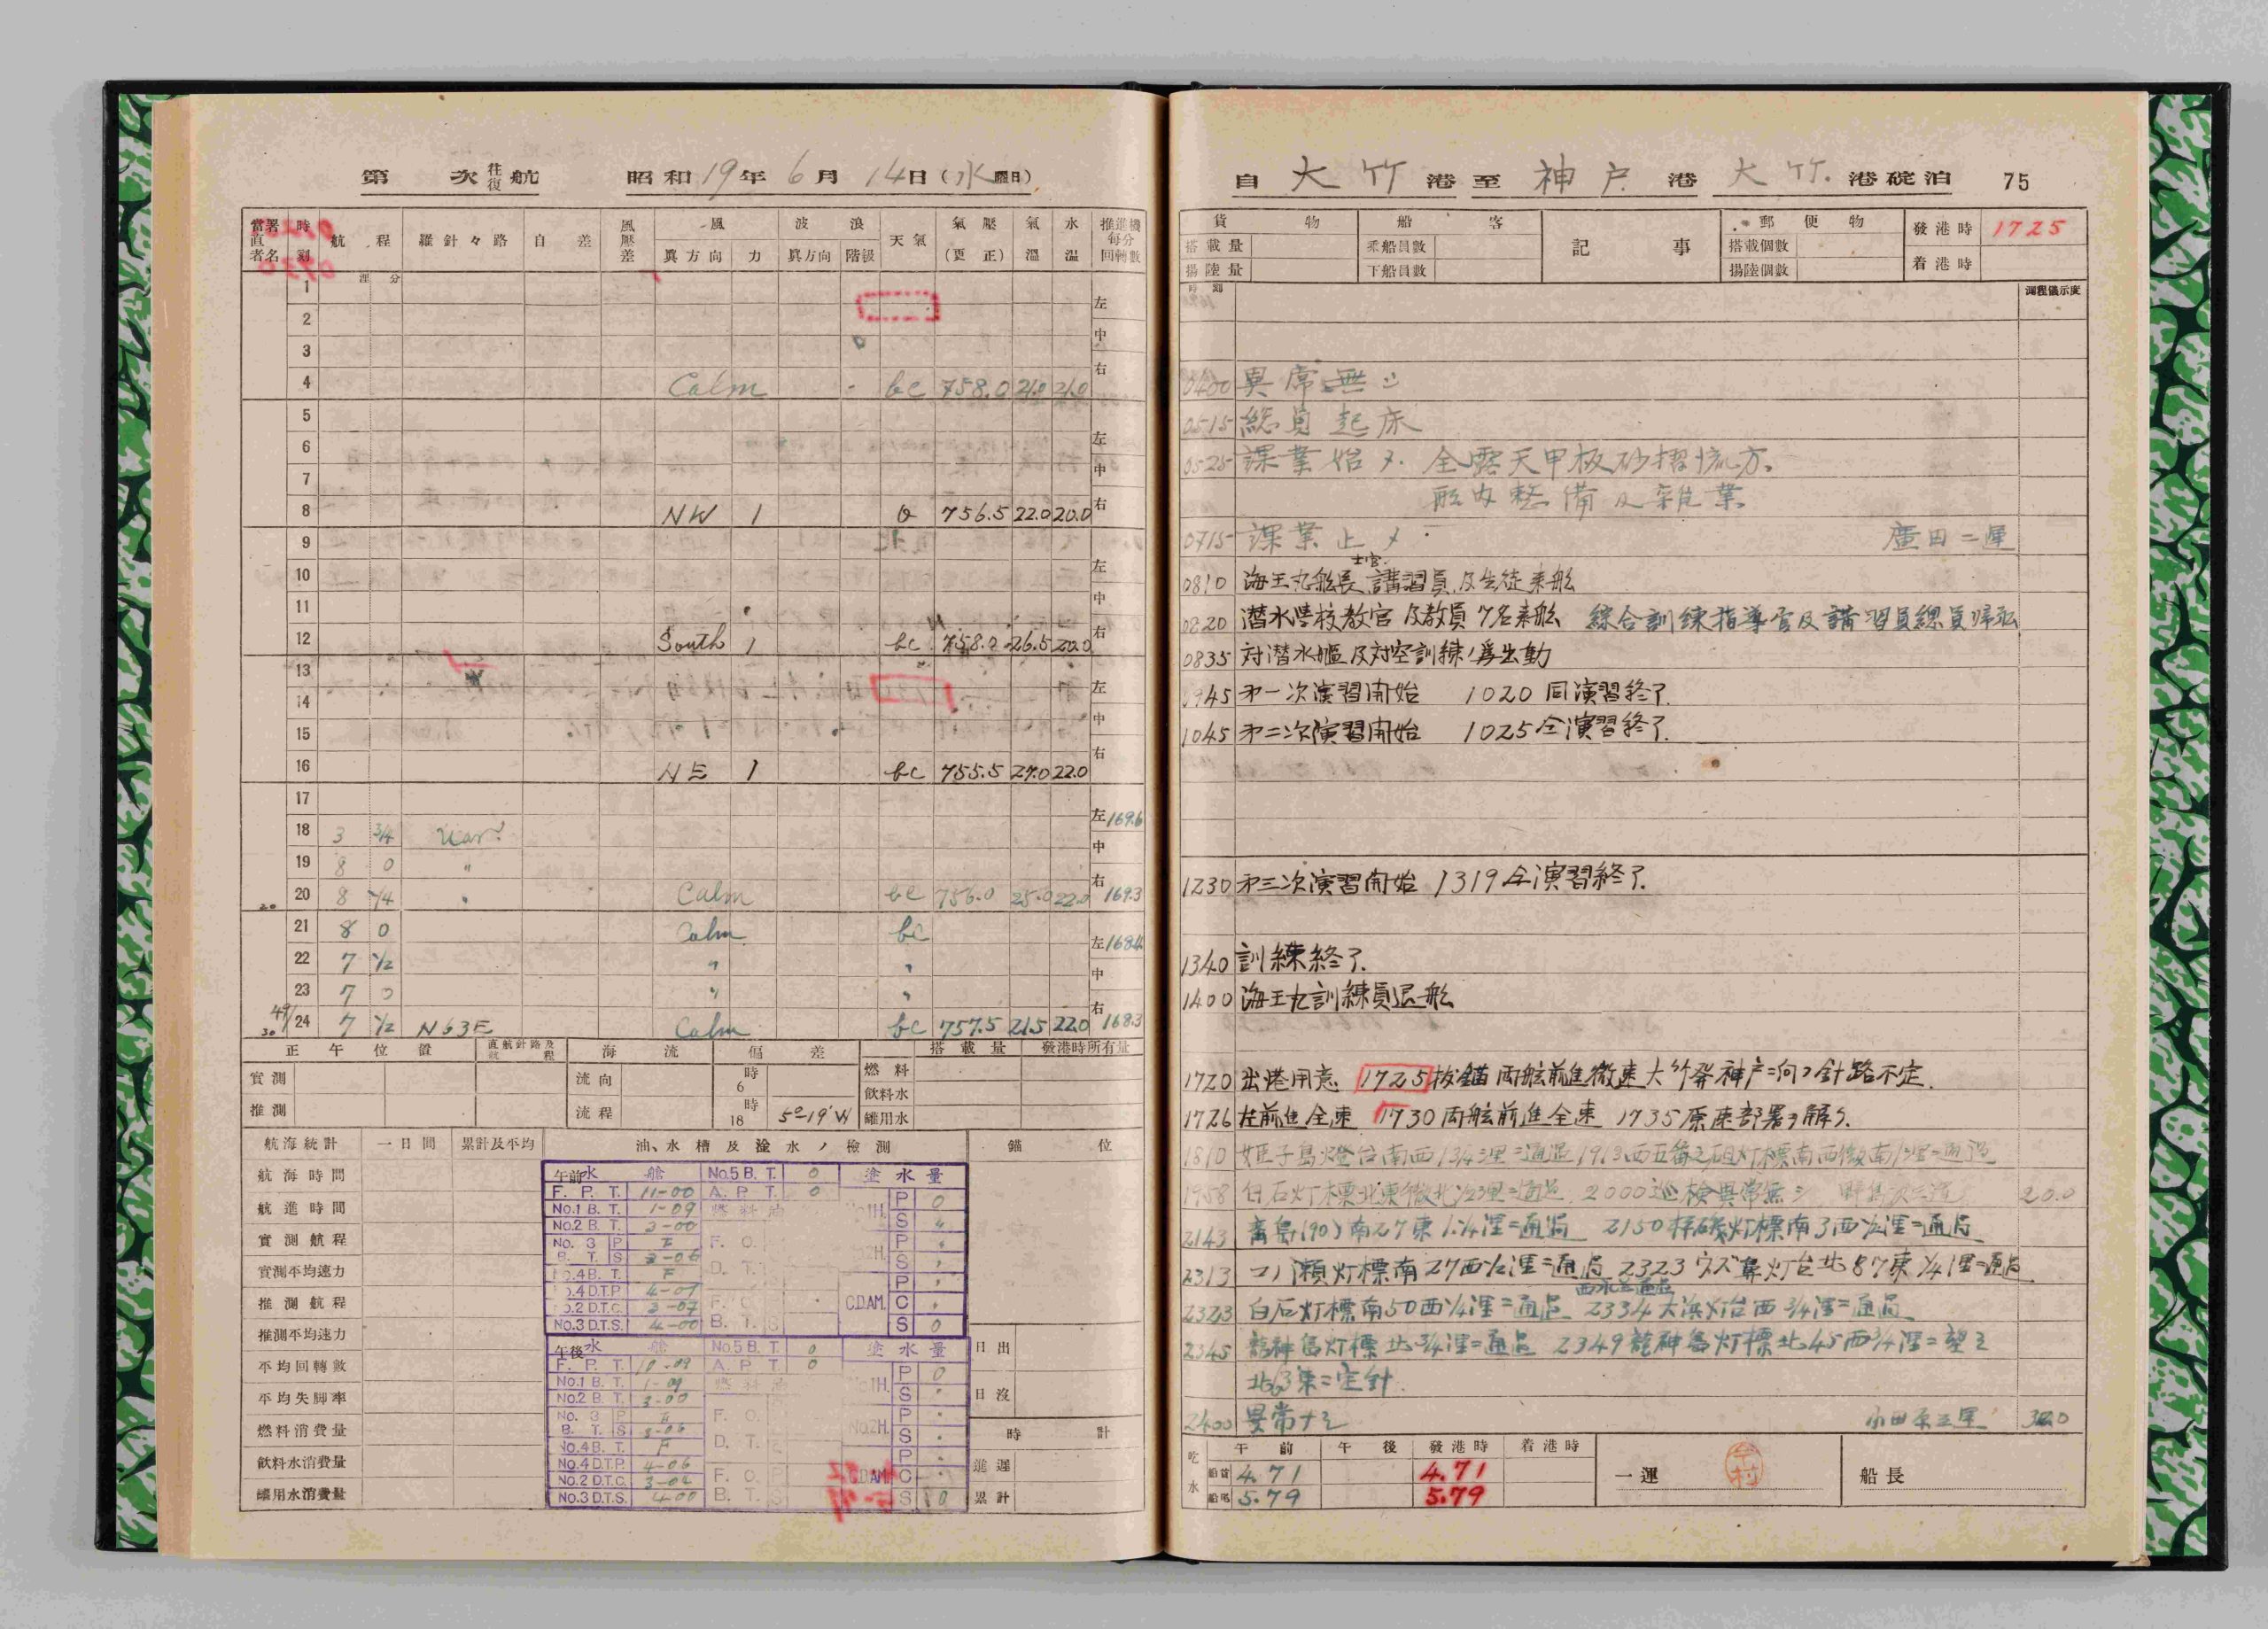 第 次 往復 航 昭和19年6月14日(水曜日)
當直者署名 時刻 航程 羅針々路 自差 風壓差 風 波浪 天氣 氣壓 氣溫 水溫 推進機每分回轉數
眞方向 力 眞方向 階級 (更正)
浬 分
1
2 左
3 中
4 Calm bc 758.0 21.0 21.0 右
5
6 左
7 中
8 NW 1 O 756.5 22.0 20.0 右
9
10 左
11 中
12 South 1 bc 758.0 26.5 20.0 右
13
14 左
15 中
16 NE 1 bc 755.5 27.0 22.0 右
17
18 3 3/4 Var? 左 169.6
19 8 0 〃 中
20 8 1/4 〃 Calm bc 756.0 25.0 22.0 右 169.3
21 8 0 Calm bc
22 7 1/2 〃 〃 左 168.4
23 7 0 〃 〃 中
24 7 1/2 N63E Calm bc 757.5 21.5 22.0 右 168.3
正午位置 直航針路及航程 海流 偏差 搭載量 發港時所有量
實測 流向 時6 燃料
飲料水
推測 流程 時18 5°-19'W 罐用水
航海統計 一日間 累計及平均 油、水槽及淦水ノ檢測 錨位
航海時間
航進時間
實測航程
實測平均速力
推測航程
推測平均速力
平均回轉數
平均失脚率
燃料消費量
飲料水消費量
罐用水消費量
午前 水艙 No.5 B.T. 0 塗水量
F. P. T. 11-00 A. P. T. 0 P 0
No.1 B. T. 1-09 燃料油 No.1H. S 〃
No.2 B. T. 3-00 P 〃
No. 3 P F F. O. No.2H. S 〃
B. T. S 3-06 D. T. P
No.4 B. T. F C.D.AM. C
No.4 D.T.P. 4-07 S 0
No.2 D.T.C. 3-07 F. O.
No.3 D.T.S. 4-00 B. T. S
午後 水艙 No.5 B.T. 0 塗水量
F. P. T. 10-09 A. P. T. 0 P 0
No.1 B. T. 1-09 燃料油 No.1H. S
No.2 B. T. 3-00 P
No. 3 P F F. O. No.2H. S
B. T. S 3-06 D. T. P
No.4 B. T. F C.D.AM. C
No.4 D.T.P. 4-06 S 0
No.2 D.T.C. 3-06 F. O. P
No.3 D.T.S. 4-00 B. T. S
日出
日沒
時計
進遲
累計
自 大竹 港至 神戸 港 大竹 港碇泊 75
貨物 船客 記事 郵便物 發港時 1725
搭載量 乘船員數 搭載個數
揚陸量 下船員數 揚陸個數 着港時
時刻 測程儀示度
0400 異常無シ
0515 総員起床
0525 課業始メ. 全露天甲板砂摺流方.
船内整備及雑業
0715 課業止メ 廣田二運
0810 海王丸船長士官.講習員及生徒来船
0820 潜水學校教官及教員7名来船 綜合訓練指導官及講習員總員帰船
0835 対潜水艦及対空訓練ノ爲出動
0945 オ一次演習開始 1020 同演習終了.
1045 オ二次演習開始 1025 仝演習終了.
1230 オ三次演習開始 1319 仝演習終了.
1340 訓練終了.
1400 海王丸訓練員退船
1720 出港用意 1725 抜錨 両舷前進微速 大竹発神戸ニ向フ針路不定.
1726 左前進全速 1730 両舷前進全速 1735 原速部署ヲ解ク.
1810 姫子島燈台南西1 3/4浬ニ通過 1913 西五番之砠灯標南西微南1浬ニ通過
1958 白石灯標北東微北1/2浬ニ通過 2000 巡檢異常無シ 20.0
2143 斎島(90)南27東1.1/4浬ニ通過 2150 灯標南3西1/2浬ニ通過
2313 コノ瀬灯標南27西1/2浬ニ通過 2323 ウズ鼻灯台北87東1/4浬ニ通過
西水道通過
2323 白石灯標南50西1/4浬ニ通過 2334 大浜灯台西3/4浬ニ通過
2345 龍神島灯標北3/4浬ニ通過 2349 龍神島灯標北45西3/4浬ニ望ミ
北63東ニ定針.
2400 異常ナシ 小田原三運
乾水 午前 午後 發港時 着港時 一運 今村 船長
船首 4.71 4.71
船尾 5.79 5.79